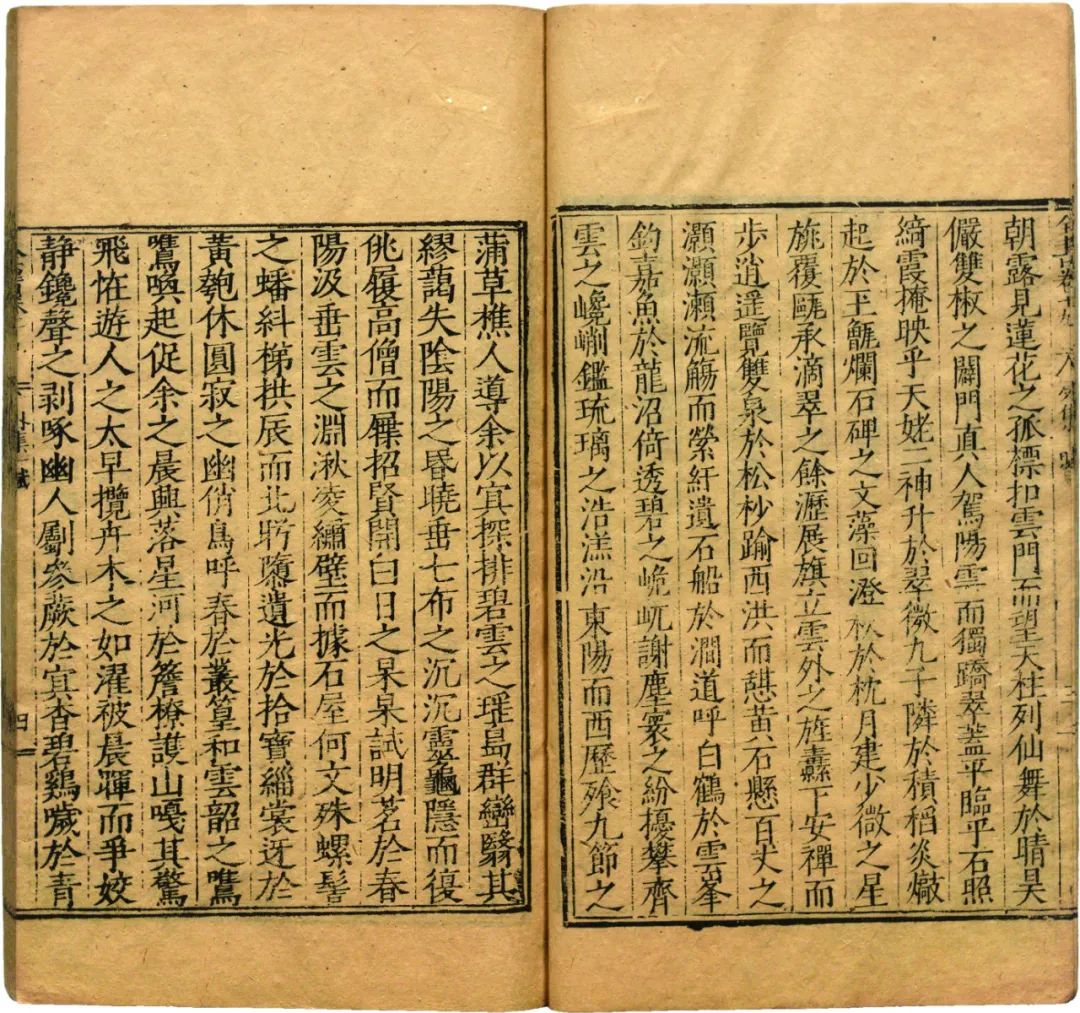 朝露見蓮花之孤標扣雲門而望天柱列仙舞於晴昊
儼雙椒之闢門真人駕陽雲而獨蹻翠蓋平臨乎石照
綺霞掩映乎天姥二神升於翠微九子隣於積稻炎歊
起於玉甑爛石碑之文藻回澄秋於枕月建少微之星
旄覆甌承滴翠之餘瀝展旗立雲外之旌纛下安禪而
步逍遥覽雙泉於松杪踰西洪而憩黄石懸百丈之
灝灝瀨流觴而縈紆遺石船於澗道呼白鶴於雲峯
鈎嘉魚於龍沼倚透碧之峗屼謝塵寰之紛擾攀齊
雲之巉峭鑑琉璃之浩溔沿東陽而西歷飱九節之
蒲草樵人導余以冥探排碧雲之瑤島群巒翳其
繆藹失陰陽之昏曉垂七布之沉沉靈龜隱而復
佻履高僧而屧招賢開白日之杲杲試明茗於春
陽汲垂雲之淵湫凌繡壁而據石屋何文殊螺髻
之蟠糾梯拱辰而北盻隳遺光於拾寶緇裳迓於
黃匏休圓寂之幽俏鳥呼春於叢篁和雲韶之鷕
鷕喚起促余之晨興落星河於簷橑護山嘎其驚
飛怪遊人之太早攬卉木之如濯被晨暉而爭姣
靜鑱聲之剥啄幽人劚參蕨於冥杳碧鷄噦於青
四